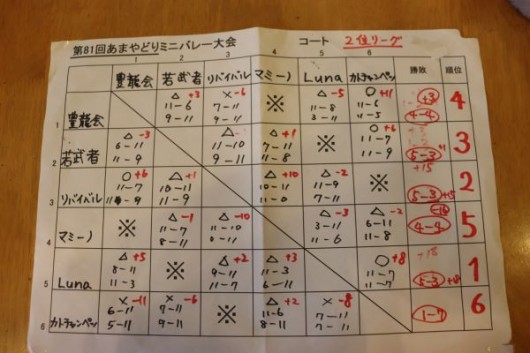 第81回あまやどりミニバレー大会 コート 2位リーグ
1 2 3 4 5 6
豊龍会 若武者 リバイバル マミーノ Luna カトチャンペッ 勝敗 順位
1 豊龍会 △ +3 × -6 ※ △ -5 ○ +11 +3 4
11-6 7-11 11-8 11-6 4-4
9-11 9-11 3-11 11-5
2 若武者 △ -3 △ -1 △ +1 ※ ○ +6 3
6-11 11-10 7-11 11-7 5-3
11-9 9-11 11-8 11-9
3 リバイバル ○ +6 △ +1 △ +10 △ -2 ※ +15 2
11-7 10-11 10-11 11-9 5-3 +15
11-9 11-9 11-0 7-11
4 マミーノ ※ △ -1 △ -10 △ -3 △ -2 -16 5
11-7 11-10 3-11 6-11 4-4
8-11 0-11 11-6 11-8
5 Luna △ +5 ※ △ +2 △ +3 ○ +8 +18 1
8-11 9-11 11-3 11-7 5-3
11-3 11-7 6-11 11-7
6 カトチャンペッ × -11 × -6 ※ △ +2 × -8 1-7 6
6-11 7-11 11-6 7-11
5-11 9-11 8-11 7-11